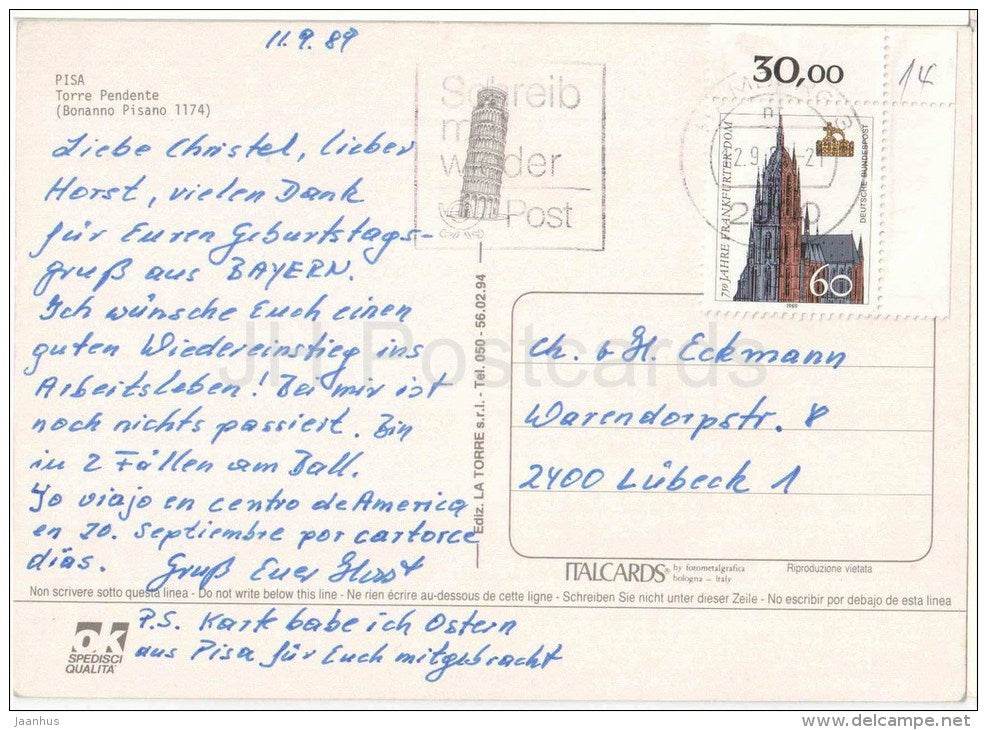 11.9.89
PISA
Torre Pendente
(Bonanno Pisano 1174)
Liebe Christel, lieber
Horst, vielen Dank
für Euren Geburtstags-
gruß aus BAYERN.
Ich wünsche Euch einen
guten Wiedereinstieg ins
Arbeitsleben! Bei mir ist
noch nichts passiert. Bin
in 2 Fällen am Ball.
Yo viajo en centro de America
en 20. Septiembre por cartorce
diás.
Gruß Euer Horst
Schreib
mal
wieder
Post
30,00
14
750 JAHRE FRANKFURTER DOM
DEUTSCHE BUNDESPOST
60
1989
Ediz. LA TORRE s.r.l. - Tel. 050 - 56.02.94
Ch. + H. Eckmann
Warendorpstr. 8
2400 Lübeck 1
ITALCARDS® by fotometalgrafica
bologna – Italy
Riproduzione vietata
Non scrivere sotto questa linea - Do not write below this line - Ne rien écrire au-dessous de cette ligne - Schreiben Sie nicht unter dieser Zeile - No escribir por debajo de esta linea
ok
SPEDISCI
QUALITA'
P.S. Karte habe ich Ostern
aus Pisa für Euch mitgebracht
JH Postcards
Jaanhus
www.delcampe.net